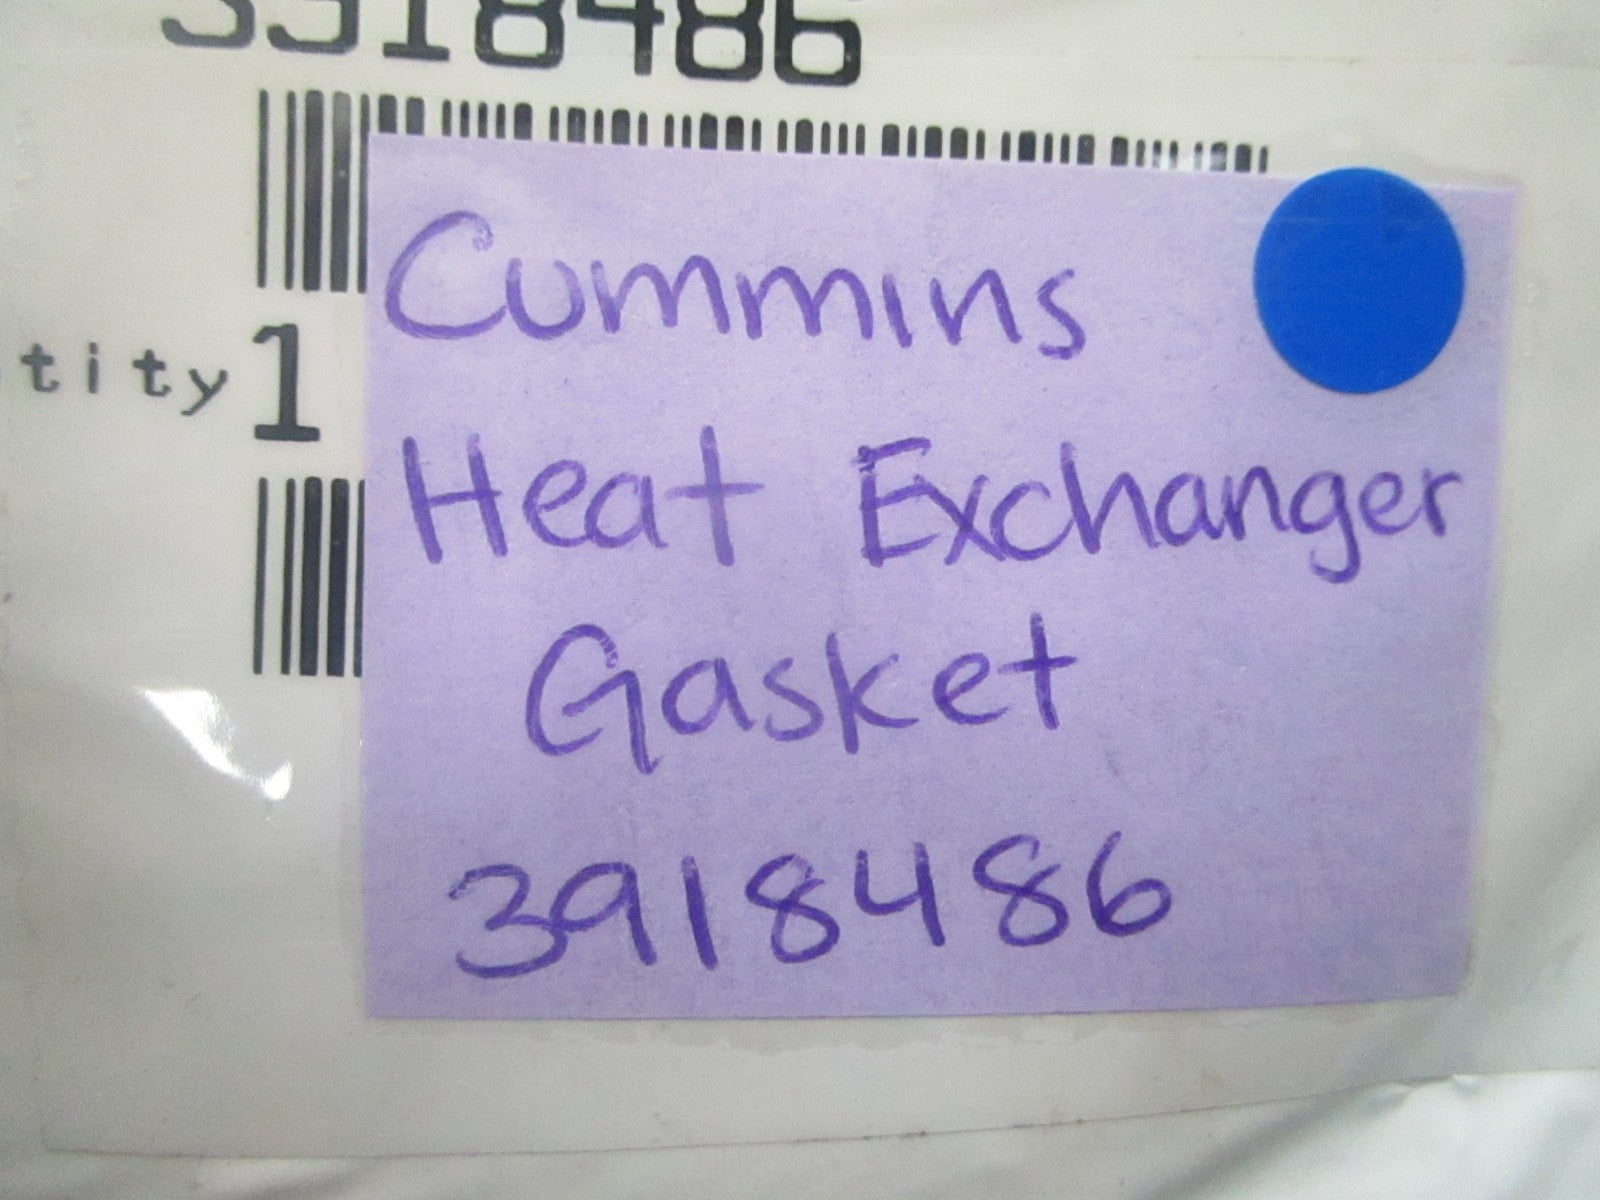 3918486
tity 1
Cummins
Heat Exchanger
Gasket
3918486